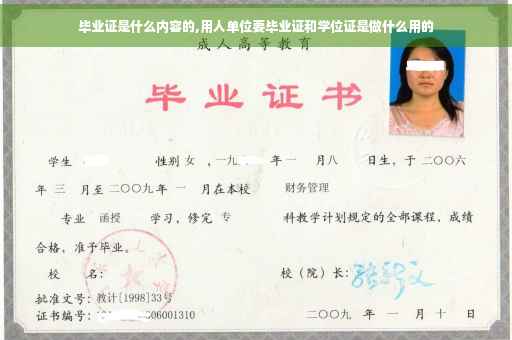 毕业证是什么内容的,用人单位要毕业证和学位证是做什么用的
成人高等教育
毕业证书
学生 性别 女 ,一九 年一 月八 日生，于二〇〇六
年 三 月至二〇〇九年 一 月在本校 财务管理
专业 函授 学习，修完 专 科教学计划规定的全部课程，成绩
合格，准予毕业。
校 名： 校（院）长：
批准文号：教计[1998]33号
证书编号： 06001310 二〇〇九 年 一 月 十 日